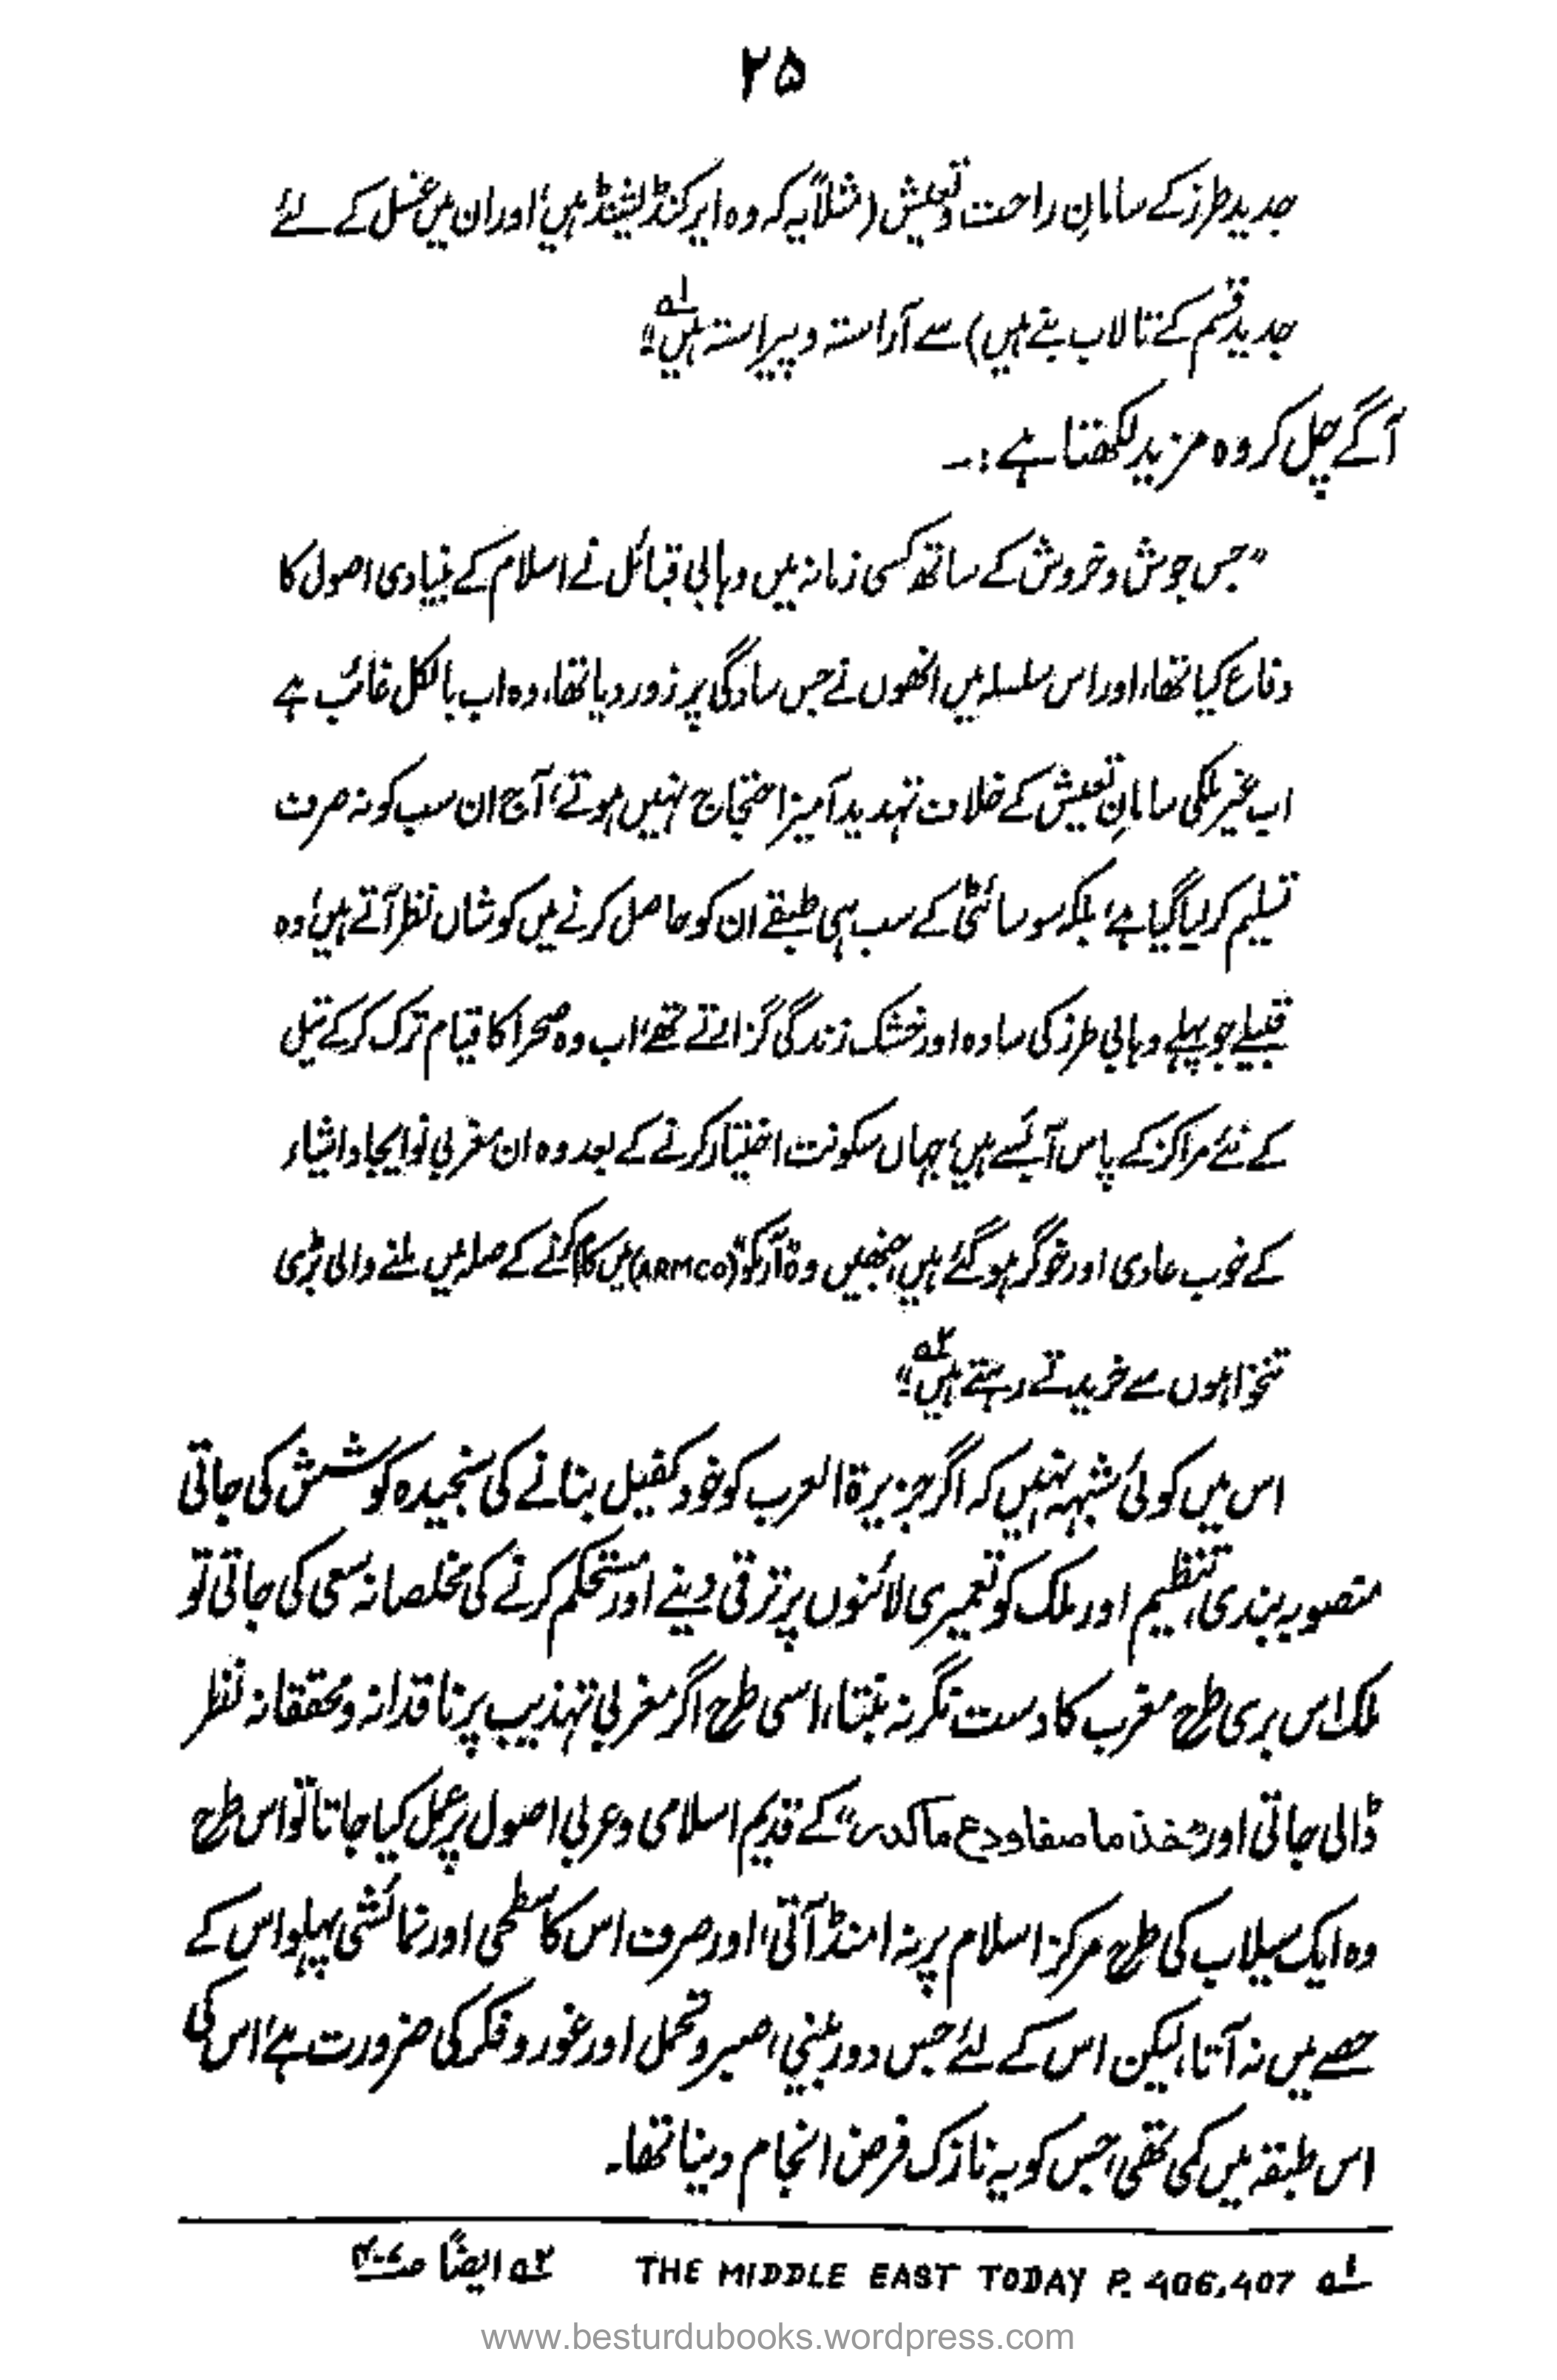 ۲۵
جدید طرز کے سامانِ راحت و تعیش (مثلاً یہ کہ وہ ایر کنڈیشنڈ ہیں، اور ان میں غسل کے لئے
جدید قسم کے تالاب بنے ہیں) سے آراستہ و پیراستہ ہیں"؂۱
آگے چل کر وہ مزید لکھتا ہے:۔
"جس جوش و خروش کے ساتھ کسی زمانہ میں وہابی قبائل نے اسلام کے بنیادی اصول کا
دفاع کیا تھا، اور اس سلسلہ میں انھوں نے جس سادگی پر زور دیا تھا، وہ اب بالکل غائب ہے
اب غیر ملکی سامانِ تعیش کے خلاف تہدید آمیز احتجاج نہیں ہوتے، آج ان سب کو نہ صرف
تسلیم کر لیا گیا ہے، بلکہ سوسائٹی کے سب ہی طبقے ان کو حاصل کرنے میں کوشاں نظر آتے ہیں، وہ
قبیلے جو پہلے وہابی طرز کی سادہ اور خشک زندگی گزارتے تھے، اب وہ صحرا کا قیام ترک کر کے تیل
کے نئے مراکز کے پاس آبسے ہیں، جہاں سکونت اختیار کرنے کے بعد وہ ان مغربی نو ایجاد اشیاء
کے خوب عادی اور خوگر ہو گئے ہیں، جنھیں وہ "آرمکو" (ARMCO) میں کام کرنے کے صلہ میں ملنے والی بڑی
تنخواہوں سے خریدتے رہتے ہیں"؂۲
اس میں کوئی شبہہ نہیں کہ اگر جزیرۃ العرب کو خود کفیل بنانے کی سنجیدہ کوشش کی جاتی
منصوبہ بندی، تنظیم اور ملک کو تعمیری لائنوں پر ترقی دینے اور مستحکم کرنے کی مخلصانہ سعی کی جاتی تو
ملک اس بری طرح مغرب کا دست نگر نہ بنتا، اسی طرح اگر مغربی تہذیب پر ناقدانہ و محققانہ نظر
ڈالی جاتی اور "خذ ما صفا ودع ما کدر" کے قدیم اسلامی و عربی اصول پر عمل کیا جاتا تو اس طرح
وہ ایک سیلاب کی طرح مرکز اسلام پر نہ امنڈ آتی، اور صرف اس کا سطحی اور نمائشی پہلو اس کے
حصے میں نہ آتا، لیکن اس کے لئے جس دور بینی، صبر و تحمل اور غور و فکر کی ضرورت ہے، اس کی
اس طبقہ میں کمی تھی، جس کو یہ نازک فرض انجام دینا تھا۔
؂۱ THE MIDDLE EAST TODAY P. 406,407 ؂۲ ایضاً ص۴۰۷
www.besturdubooks.wordpress.com